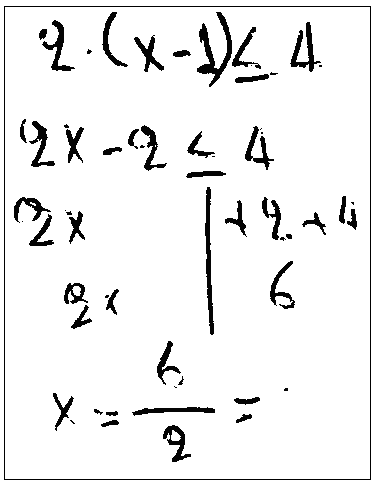 2·(x-1)≤4
2x-2≤4
2x | +2+4
2x | 6
x = 6/2 =